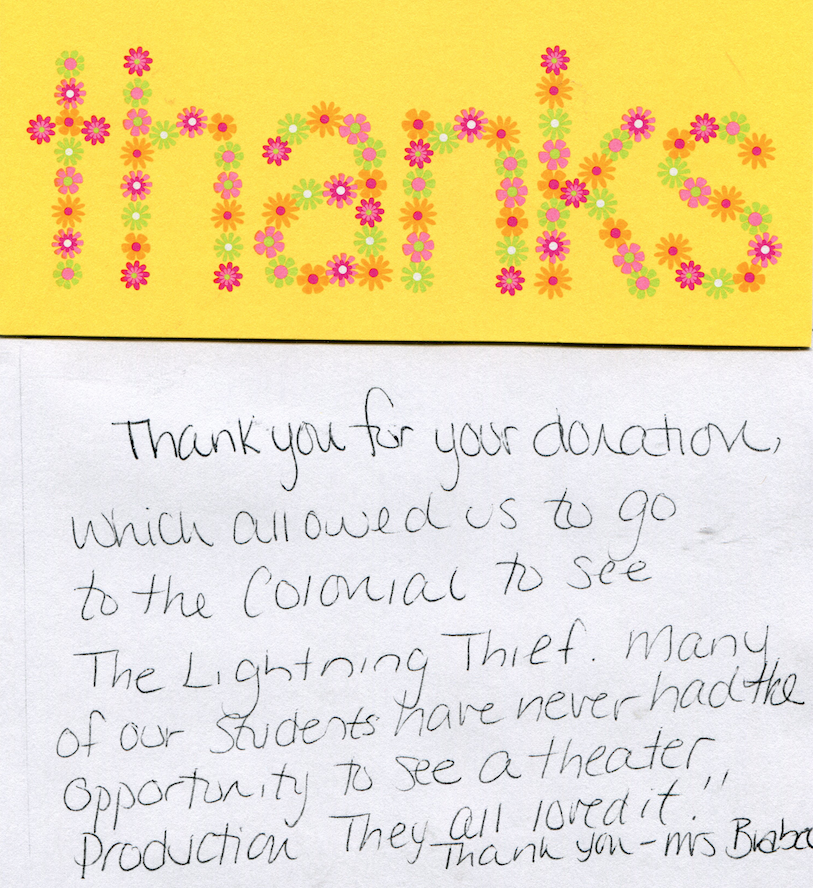 thanks
Thank you for your donation,
which allowed us to go
to the Colonial to see
The Lightning Thief. Many
of our students have never had the
opportunity to see a theater
production They all loved it."
Thank you - Mrs